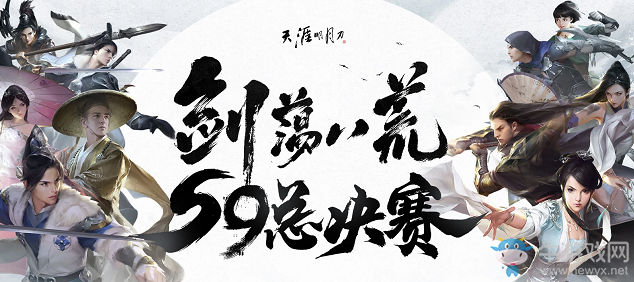 天涯明月刀
剑荡八荒
59总决赛
游戏网
www.newyx.net